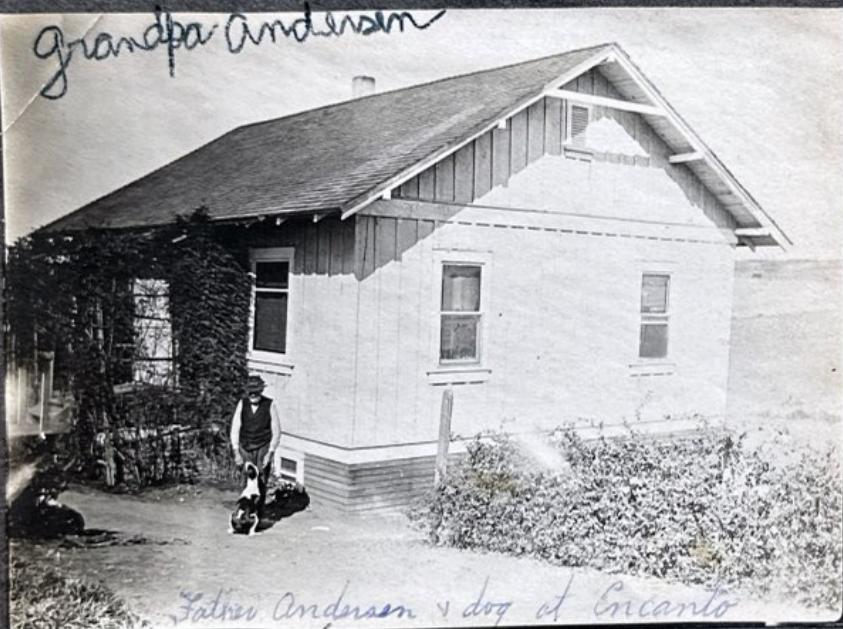 Grandpa Andersen
Father Andersen & dog at Encanto